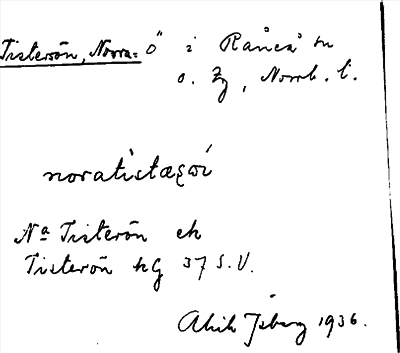 Tistersön, Norra = ö i Råneå sn
o. Zg, Norrb. l.
noratistæ
Na Tisterön ek
Tisterön hG 37 S.V.
Isberg 1936.